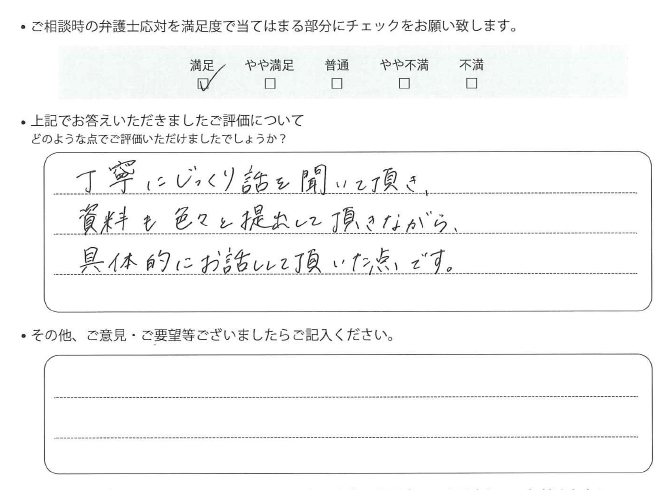 • ご相談時の弁護士応対を満足度で当てはまる部分にチェックをお願い致します。
満足 やや満足 普通 やや不満 不満
☑ □ □ □ □
• 上記でお答えいただきましたご評価について
どのような点でご評価いただけましたでしょうか？
丁寧にじっくり話を聞いて頂き、
資料も色々と提出して頂きながら、
具体的にお話しして頂いた点です。
• その他、ご意見・ご要望等ございましたらご記入ください。